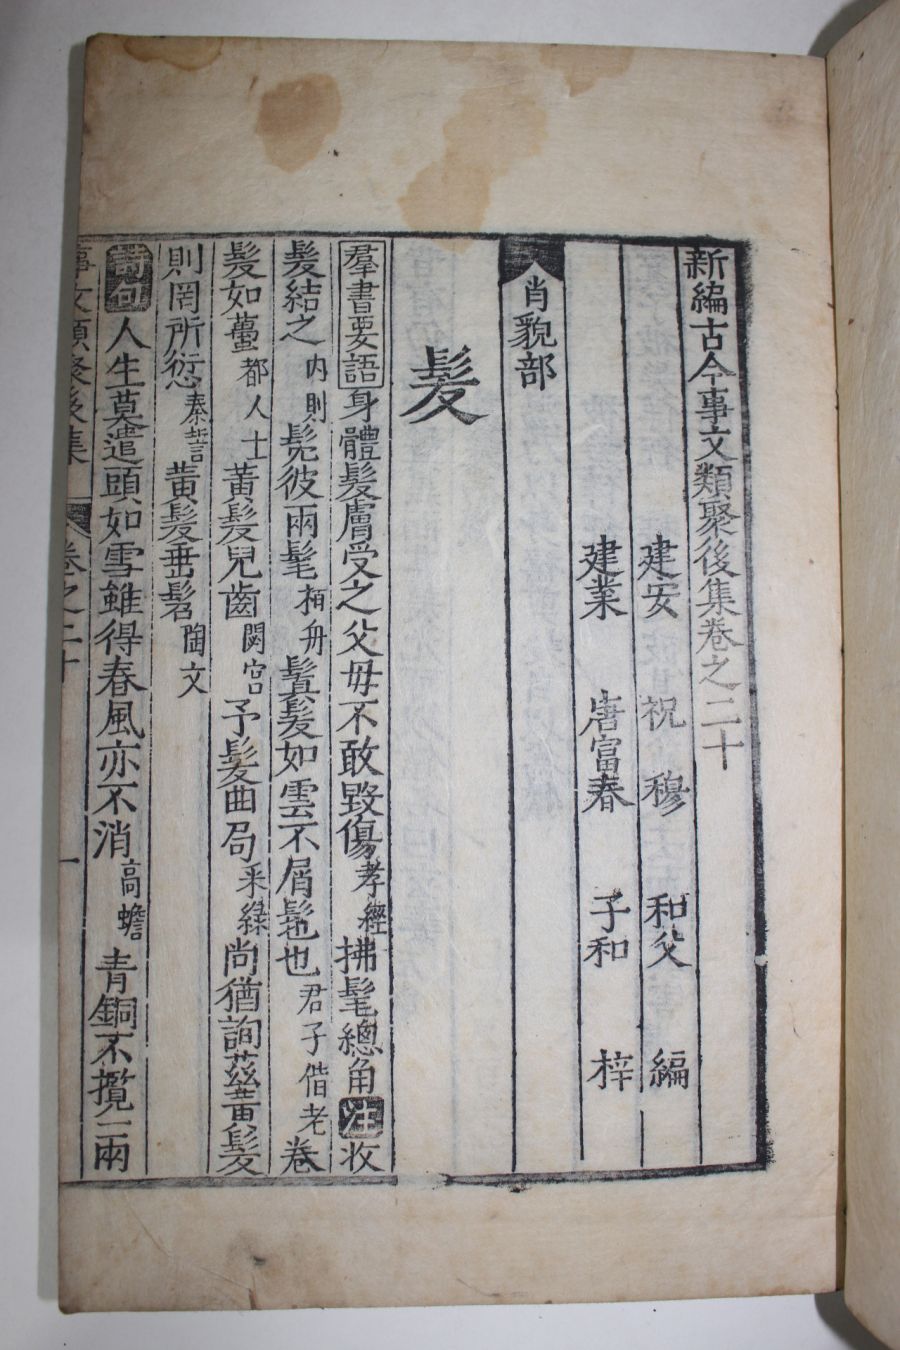 新編古今事文類聚後集卷之二十
建安 祝 穆 和父 編
建業 唐富春 子和 梓
肖貌部
髪
羣書要語身體髪膚受之父母不敢毀傷孝經拂髦總角注收
髪結之内則髧彼兩髦柏舟鬒髪如雲不屑髢也君子偕老卷
髪如蠆都人士黃髪兒齒閟宮予髪曲局采綠尚猶詢茲黃髪
則罔所愆秦誓黃髪垂髫陶文
詩句人生莫遣頭如雪雖得春風亦不消高蟾青銅不攬一兩
事文類聚後集 卷之二十 一